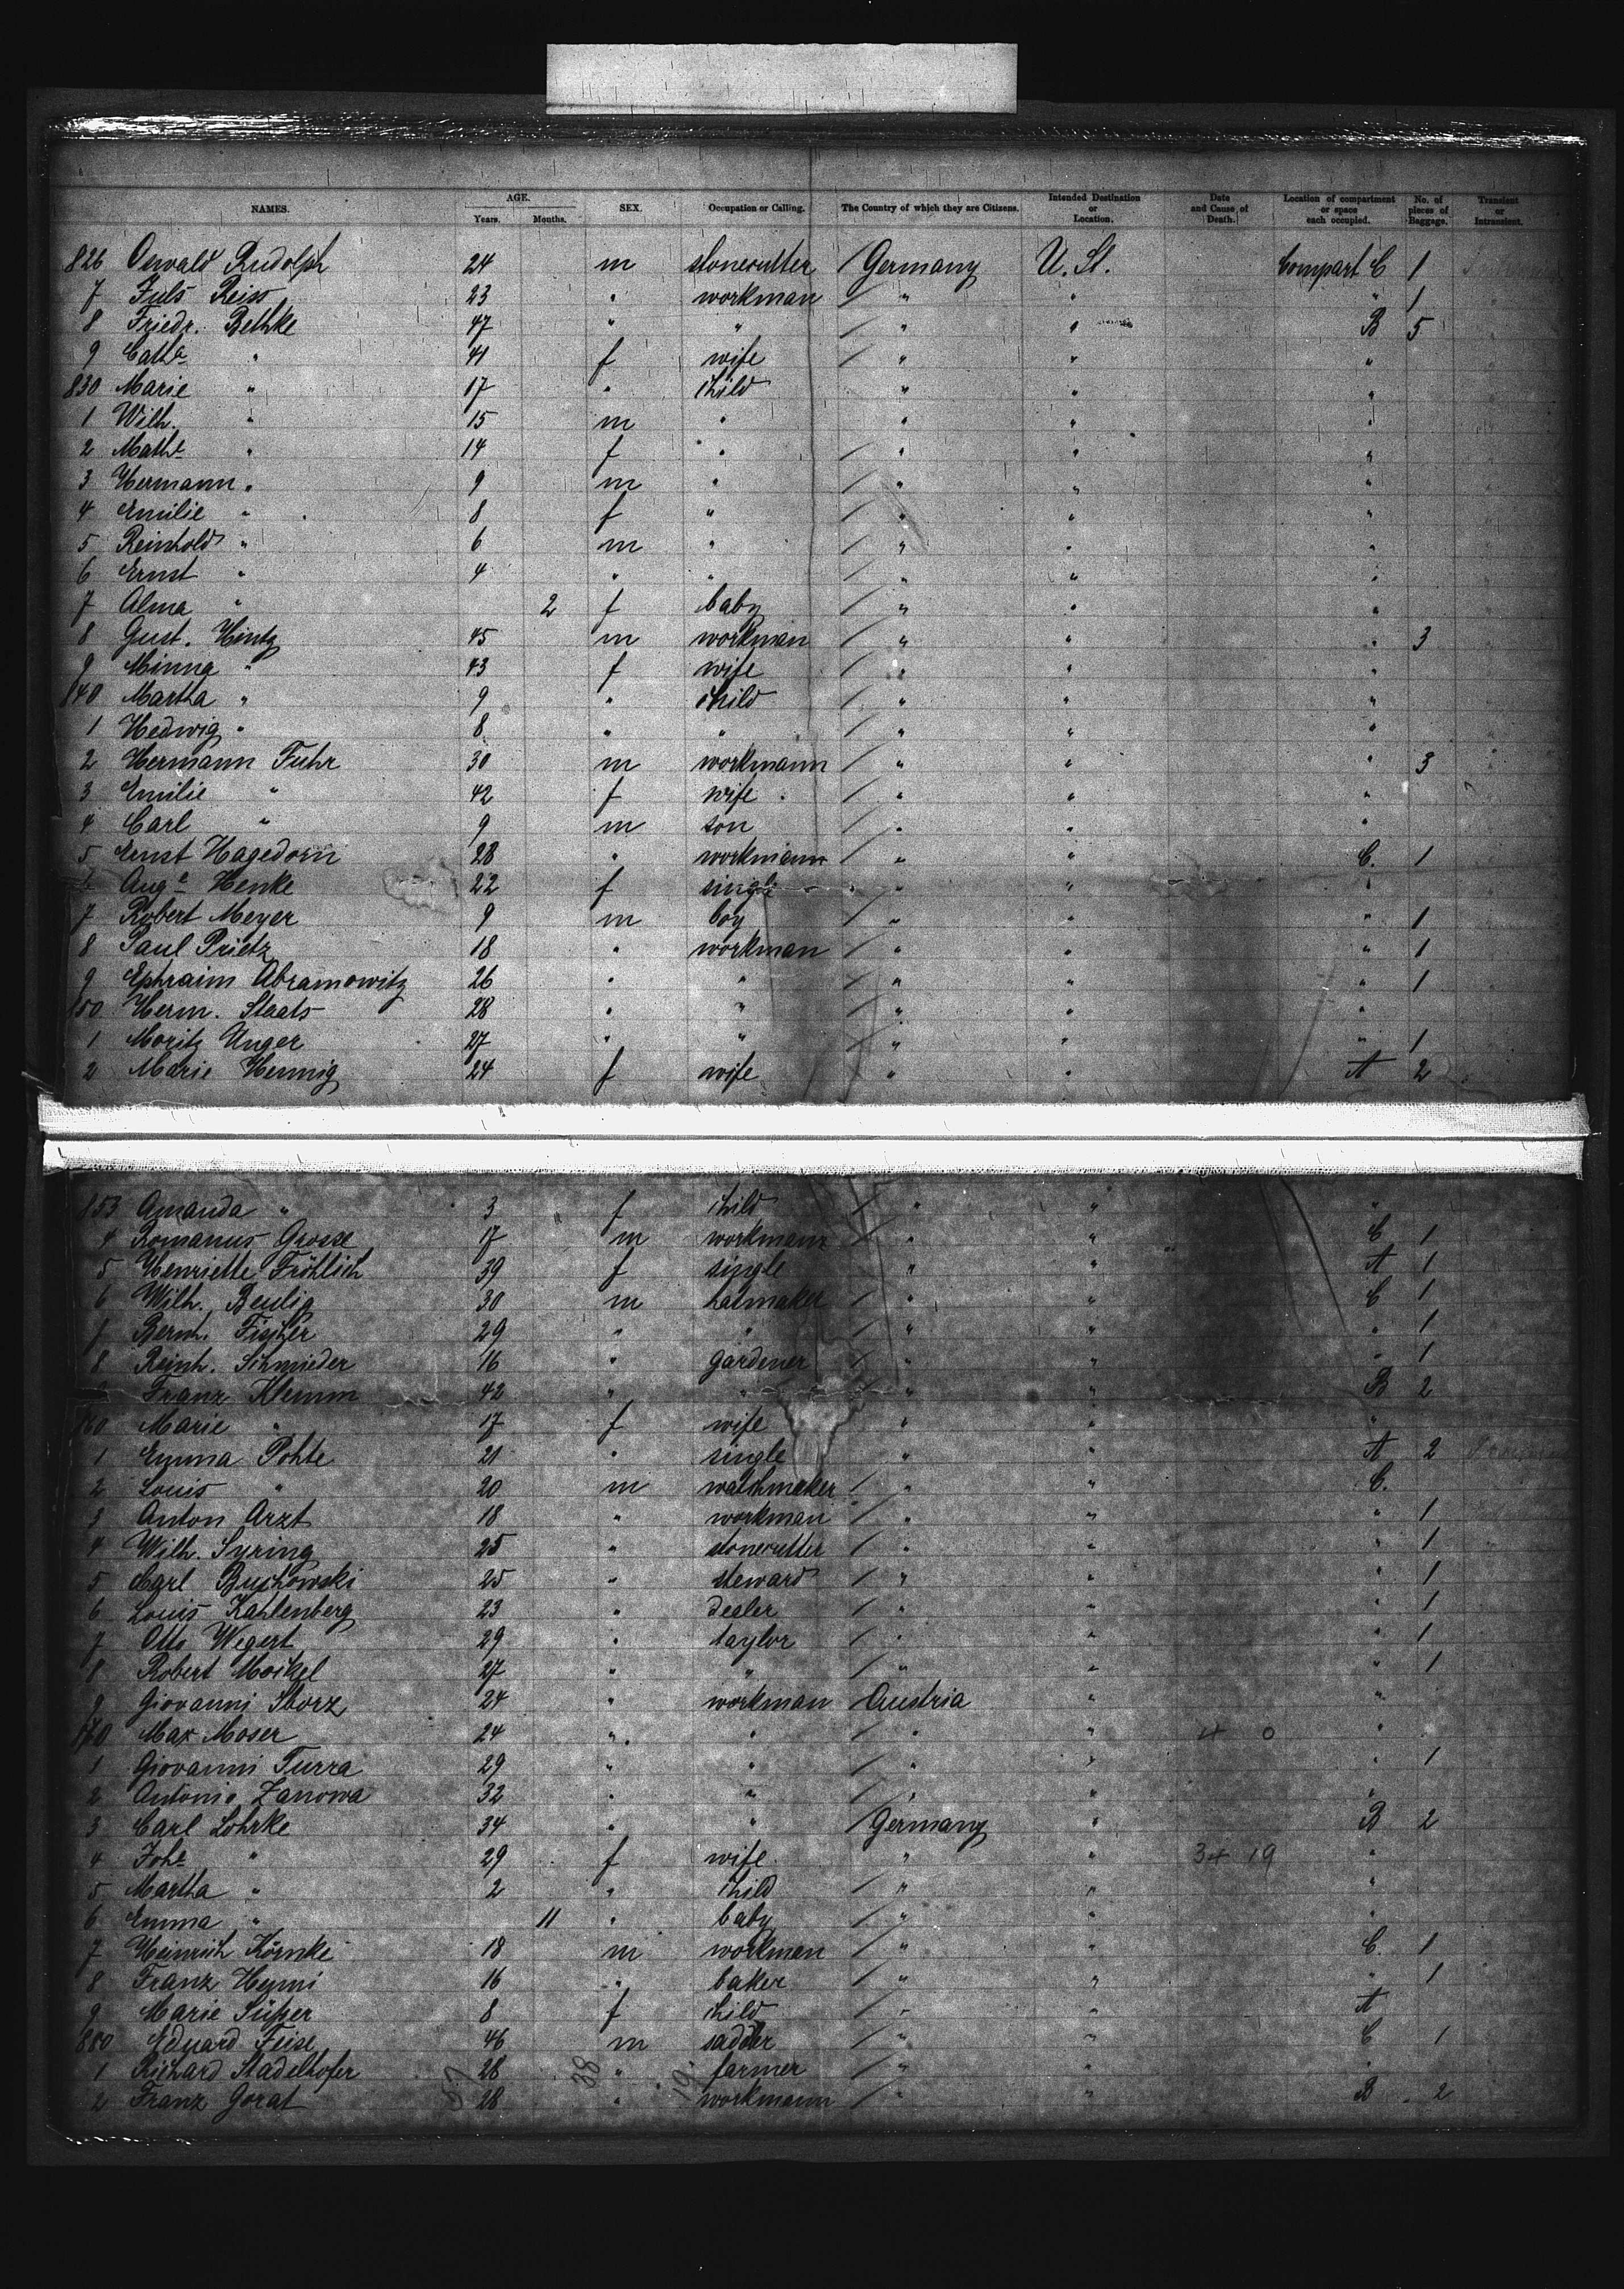 NAMES. AGE. Years. Months. SEX. Occupation or Calling. The Country of which they are Citizens. Intended Destination or Location. Date and Cause of Death. Location of compartment or space each occupied. No. of pieces of Baggage. Transient or Intransient.
826 Oswald Rudolph 24 m stonecutter / Germany U. St. Compart C 1
7 Juls Reiss 23 " workman / " " " 1
8 Friedr. Bethke 47 " " / " " B 5
9 Cathe " 41 f wife / " " "
830 Marie " 17 " child " " "
1 Wilh. " 15 m " " " "
2 Mathe " 14 f " / " " "
3 Hermann " 9 m " / " " "
4 Emilie " 8 f " / " " "
5 Reinhold " 6 m " / " " "
6 Ernst " 4 " " / " " "
7 Alma " 2 f baby / " " "
8 Gust. Hintz 45 m workman / " " " 3
9 Minna " 43 f wife / " " "
840 Martha " 9 " child / " " "
1 Hedwig " 8 " " / " " "
2 Hermann Fuhr 30 m workmann / " " " 3
3 Emilie " 42 f wife / " " "
4 Carl " 9 m son / " " "
5 Ernst Hagedorn 28 " workmann / " " C. 1
6 Auge Henke 22 f single " " "
7 Robert Meyer 9 m boy / " " " 1
8 Paul Prietz 18 " workman / " " " 1
9 Ephraim Abramowitz 26 " " / " " " 1
850 Herm. Staats 28 " " / " " "
1 Moritz Unger 27 " " / " " " 1
2 Marie Hennig 24 f wife " " A 2
853 Amanda " 3 f child / " " "
4 Romanus Grosse 17 m workmann " " C 1
5 Henriette Fröhlich 39 f single " " A 1
6 Wilh. Beulig 30 m hatmaker / " " C 1
7 Bernh. Fischer 29 " " / " " " 1
8 Reinh. Schmieder 16 " gardener / " " " 1
9 Franz Klemm 42 " " " " B 2
860 Marie " 17 f wife " " "
1 Emma Pohte 21 " single " " A 2
2 Louis " 20 m watchmaker / " " C.
3 Anton Arzt 18 " workman / " " " 1
4 Wilh. Syring 25 " stonecutter / " " " 1
5 Carl Buchowski 25 " steward / " " " 1
6 Louis Kahlenberg 23 " dealer / " " " 1
7 Otto Wegert 29 " taylor / " " " 1
8 Robert Moickel 27 " " / " " " 1
9 Giovanni Sborz 24 " workman / Austria " "
870 Max Moser 24 " " / " " "
1 Giovanni Turra 29 " " / " " " 1
2 Antonio Zanowa 32 " " / " " "
3 Carl Lohrke 34 " " / Germany " B 2
4 Johe " 29 f wife " " 34 19 "
5 Martha " 2 " child / " " "
6 Emma " 11 " baby / " " "
7 Heinrich Körnke 18 m workman / " " C. 1
8 Franz Heymi 16 " baker / " " " 1
9 Marie Süßer 8 f child / " " A
880 Eduard Feise 46 m saddler / " " C 1
1 Richard Stadelhofer 28 " farmer / " " "
2 Franz Gorat 28 " workmann / " " B 2